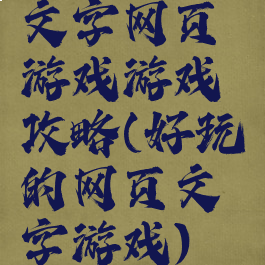 文字网页
游戏游戏
攻略(好玩
的网页文
字游戏)